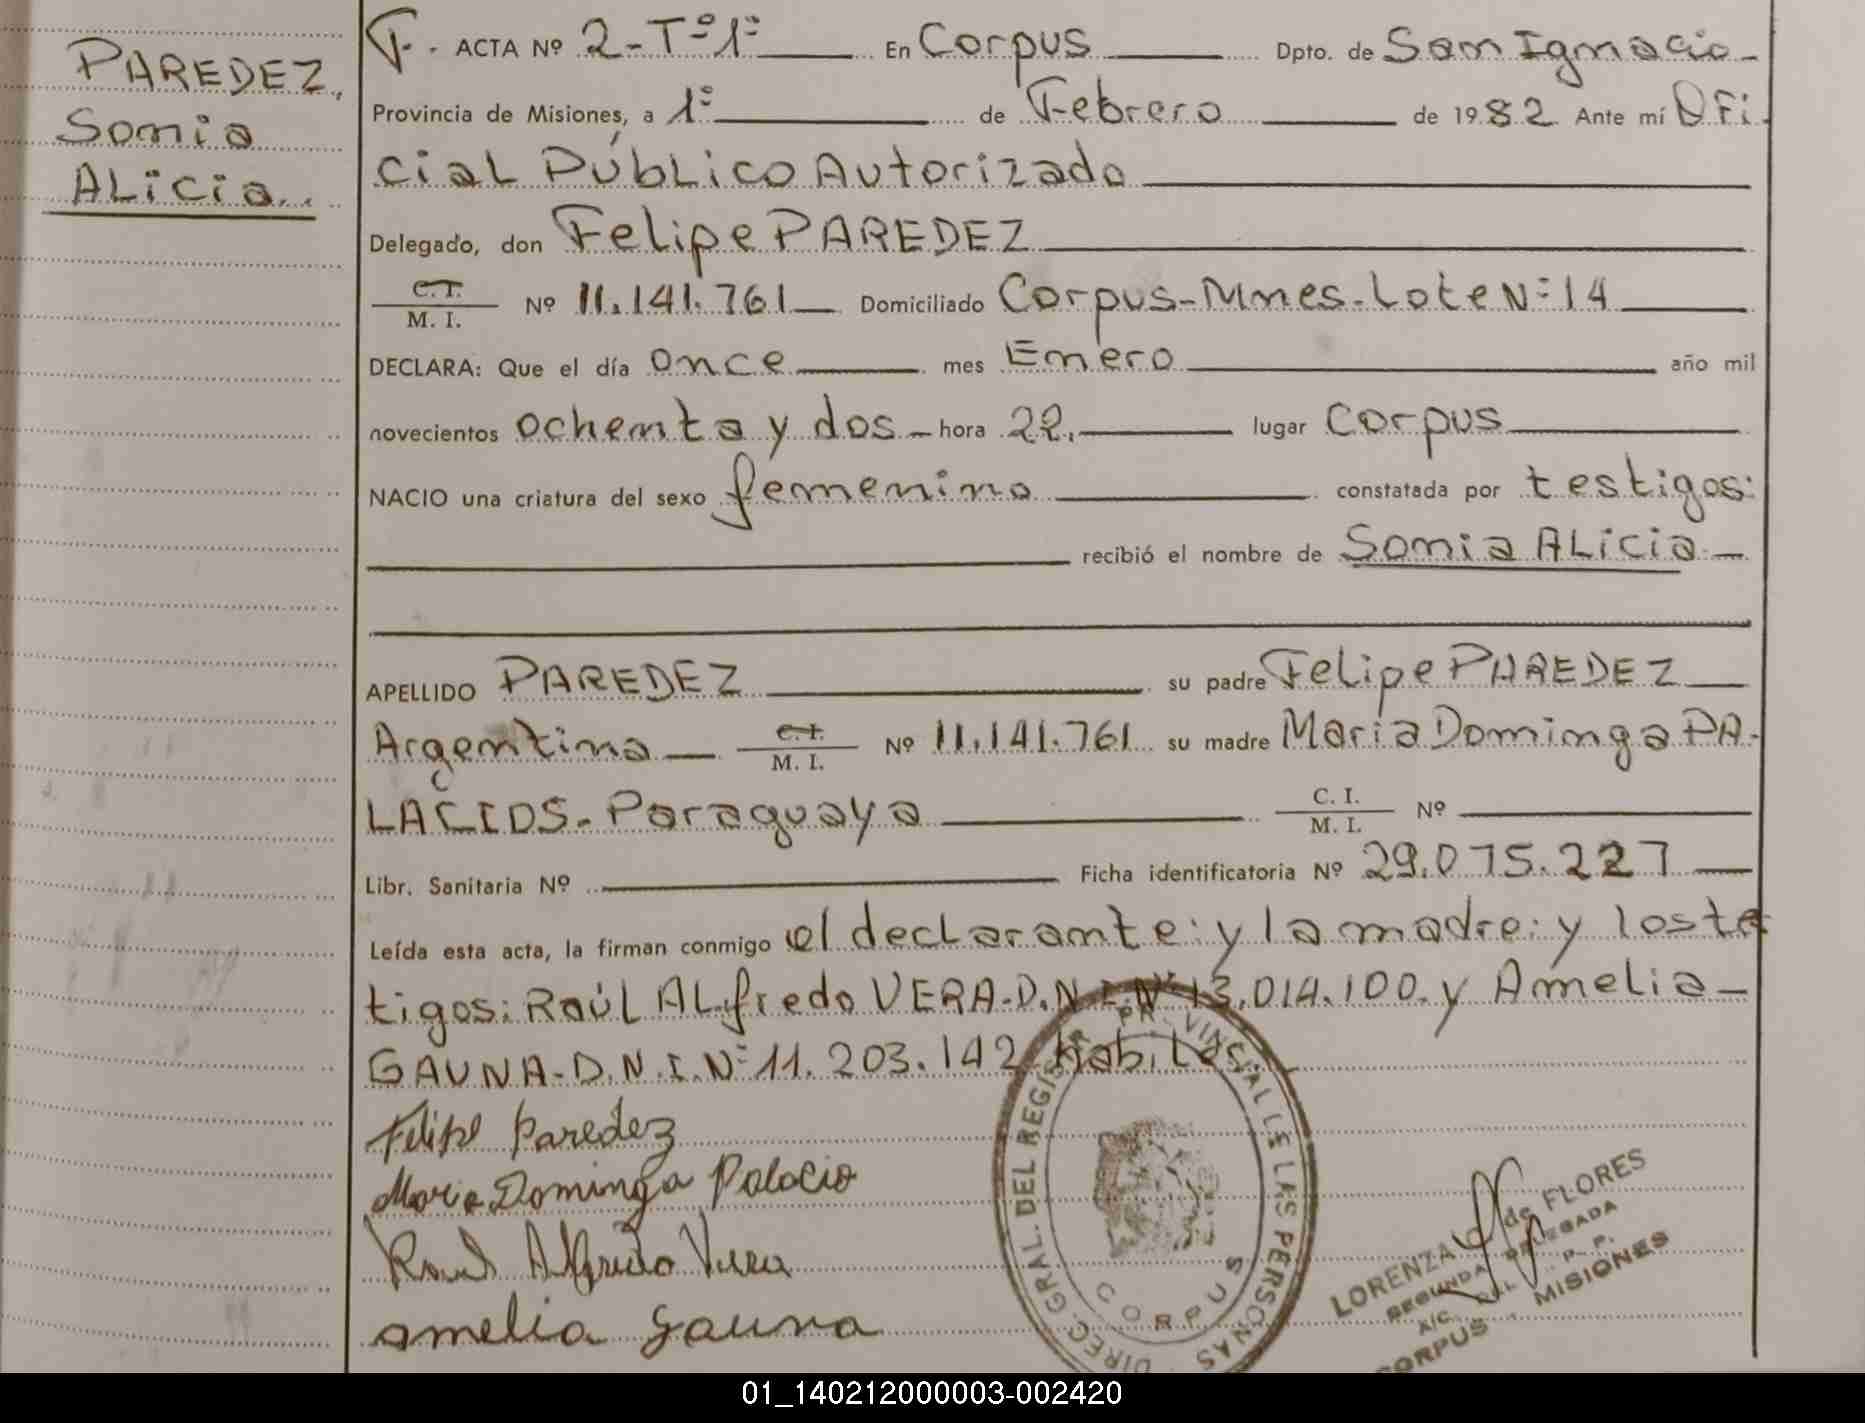 PAREDEZ,
Sonia
ALicia..
F. ACTA Nº 2-Tº1º En Corpus Dpto. de San Ignacio-
Provincia de Misiones, a 1º de Febrero de 1982 Ante mí OFi-
ciaL PúbLico Autorizado
Delegado, don Felipe PAREDEZ
C.I. M. I. Nº 11.141.761 Domiciliado Corpus-Mnes.Lote Nº 14
DECLARA: Que el día once mes Enero año mil
novecientos ochenta y dos - hora 22. lugar Corpus
NACIO una criatura del sexo femenino constatada por testigos:
recibió el nombre de Sonia ALicia-
APELLIDO PAREDEZ su padre Felipe PAREDEZ
Argentina C.I. M. I. Nº 11.141.761 su madre María Dominga PA-
LACIOS- Paraguaya C. I. M. I. Nº
Libr. Sanitaria Nº Ficha identificatoria Nº 29.075.227
Leída esta acta, la firman conmigo el decLarante: y la madre: y los te
tigos: RaúL ALfredo VERA-D.N.I.Nº 13.014.100. y Amelia-
GAUNA-D.N.I.Nº 11.203.142 habiles.
Felipe Paredez
Maria Dominga Palacio
Raul Alfredo Vera
amelia gauna
DIREC. GRAL. DEL REGISTR PR VINCIAL DE LAS PERSONAS
CORPUS
LORENZA de FLORES
SEGUNDA DELEGADA
A/C. DEL P. P.
CORPUS - MISIONES
01_140212000003-002420